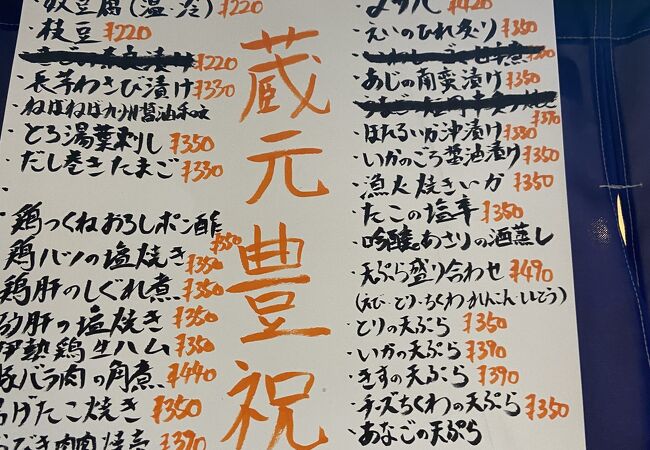 奴豆腐(温・冷) ¥220
・枝豆 ¥220
¥220
・長芋わさび漬け ¥330
・ねばねば九州醤油和え
・とろ湯葉刺し ¥350
・だし巻きたまご ¥330
・
・鶏つくねおろしポン酢
¥350
鶏ハツの塩焼き ¥350
鶏肝のしぐれ煮 ¥350
砂肝の塩焼き ¥350
伊勢鶏生ハム ¥350
豚バラ肉の角煮 ¥440
揚げたこ焼き ¥350
¥390
蔵元豊祝
¥420
・えいのひれ炙り ¥350
・あじの南蛮漬け ¥350
¥390
・ほたるいか沖漬け ¥330
・いかのごろ醤油漬け ¥350
・漁火焼きいか ¥350
・たこの塩辛 ¥350
・吟醸あさりの酒蒸し
・天ぷら盛り合わせ ¥490
(えび・とり・ちくわ・かんこん・ししとう)
・とりの天ぷら ¥350
・いかの天ぷら ¥390
・きすの天ぷら ¥390
・チーズちくわの天ぷら ¥350
・あなごの天ぷら